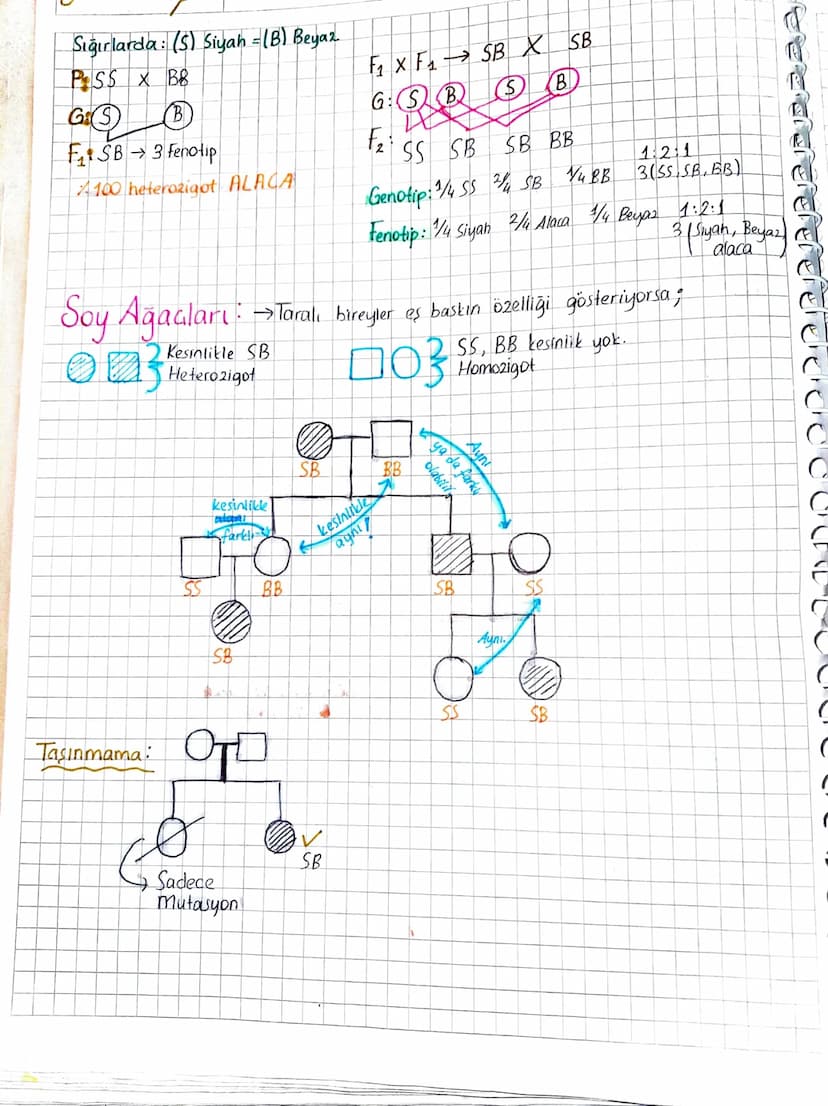 Sığırlarda: (S) Siyah = (B) Beyaz
P: SS X BB
G: S B
F1: SB → 3 Fenotip
% 100 heterozigot ALACA
F1 X F1 → SB X SB
G: S B S B
F2: SS SB SB BB
Genotip: 1/4 SS 2/4 SB 1/4 BB 1:2:1
3(SS, SB, BB)
Fenotip: 1/4 Siyah 2/4 Alaca 1/4 Beyaz 1:2:1
3 (Siyah, Beyaz,
alaca)
Soy Ağaçları: → Taralı bireyler eş baskın özelliği gösteriyorsa;
Kesinlikle SB
Heterozigot
SS, BB kesinlik yok.
Homozigot
SB BB
Aynı
ya da farklı
olabilir
kesinlikle
farklı
kesinlikle
aynı!
SS BB SB SS
SB
Aynı
SS SB
Taşınmama:
SB
Sadece
Mutasyon